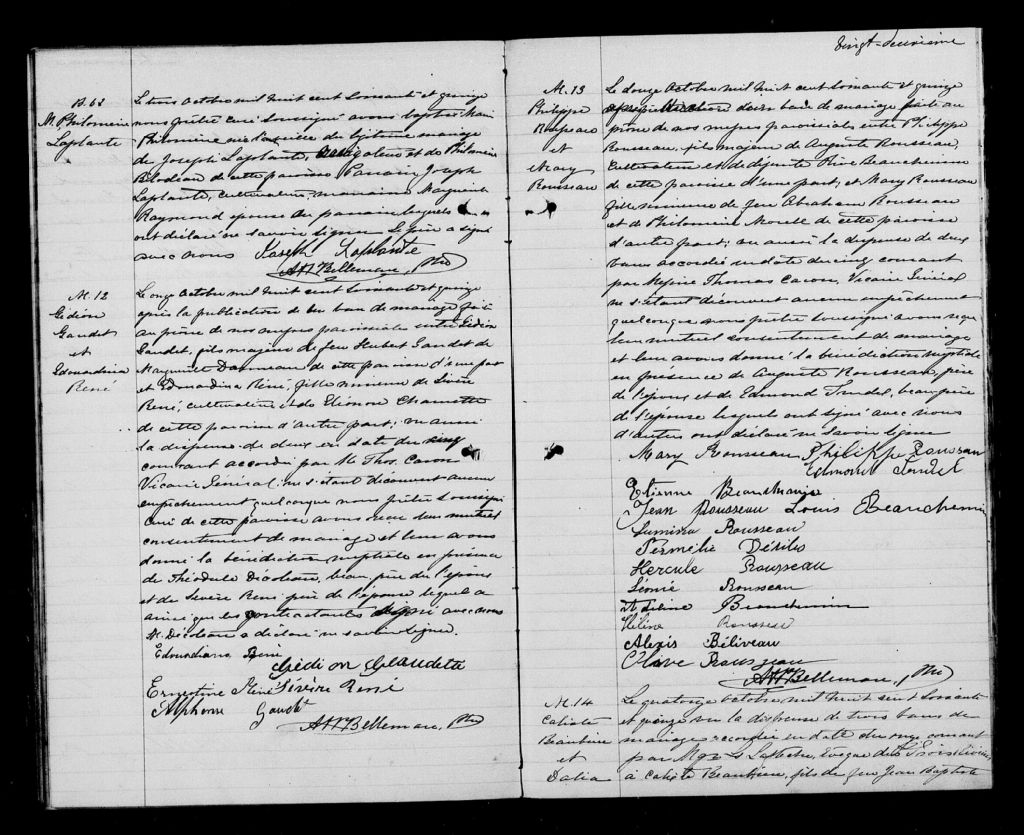 B. 63
M. Philomène
Laplante
Le trois Octobre mil huit cent soixante et quinze
nous prêtre curé soussigné avons baptisé Marie
Philomène née du légitime mariage
de Joseph Laplante, et de Philomène
Bilodeau de cette paroisse Parrain Joseph
Laplante, cultivateur, marraine Marguerite
Raymond épouse du parrain lesquels
ont déclaré ne savoir signer. Le père a signé
avec nous Joseph Laplante
Bellemare, Ptre
M. 12
Gédéon
Gaudet
et
Edouardina
René
Le onze Octobre mil huit cent soixante et quinze
après la publication d'un ban de mariage faite
au prône de nos messes paroissiales entre Gédéon
Gaudet, fils majeur de feu Hubert Gaudet de
Marguerite de cette paroisse d'une part
et Edouardina René, fille mineure de Sévère
René, cultivateur et de Eléonore
de cette paroisse d'autre part; vu aussi
la dispense de deux en date du cinq
courant accordée par M. Thos. Caron
Vicaire Général; ne s'étant découvert aucun
empêchement quelconque nous prêtre soussigné
curé de cette paroisse avons reçu leur mutuel
consentement de mariage et leur avons
donné la bénédiction nuptiale en présence
de Théodule beau père de l'époux
et de Sévère René père de l'épouse lequel a
ainsi que les contractants signé avec nous
M. a déclaré ne savoir signer.
Edouardiana René
Gédion Gaudette
Ernestine René Sévère René
Alphonse Gaudet
Bellemare, Ptre
Vingt-deuxième
M. 13
Philippe
Rousseau
et
Mary
Rousseau
Le douze Octobre mil huit cent soixante et quinze
après publication d'un ban de mariage faite au
prône de nos messes paroissiales entre Philippe
Rousseau, fils majeur de Auguste Rousseau,
cultivateur et de défunte Olive Beauchemin
de cette paroisse d'une part; et Mary Rousseau
fille mineure de feu Abraham Rousseau
et de Philomène de cette paroisse
d'autre part; vu aussi la dispense de deux
bans accordée en date du cinq courant
par Messire Thomas Caron, Vicaire Général
ne s'étant découvert aucun empêchement
quelconque nous prêtre soussigné avons reçu
leur mutuel consentement de mariage
et leur avons donné la bénédiction nuptiale
en présence de Auguste Rousseau, père
de l'époux et de Edmond Trudel, beau père
de l'épouse lesquels ont signé avec nous
d'autres ont déclaré ne savoir signer
Mary Rousseau Philippe Rousseau
Edmond Trudel
Etienne Beauchemin
Jean Rousseau Louis Beauchemin
Rousseau
Désilets
Hercule Rousseau
Léonie Rousseau
Adeline Beauchemin
Héline Rousseau
Alexis Béliveau
Olive Rousseau
Bellemare, Ptre
M. 14
Calixte
Beaubien
et
Dalia
Le quatorze Octobre mil huit cent soixante
et quinze vu la dispense de trois bans de
mariage accordée en date du onze courant
par Mgr L. Laflèche, Evêque des Trois-Rivières
à Calixte Beaubien, fils de feu Jean Baptiste